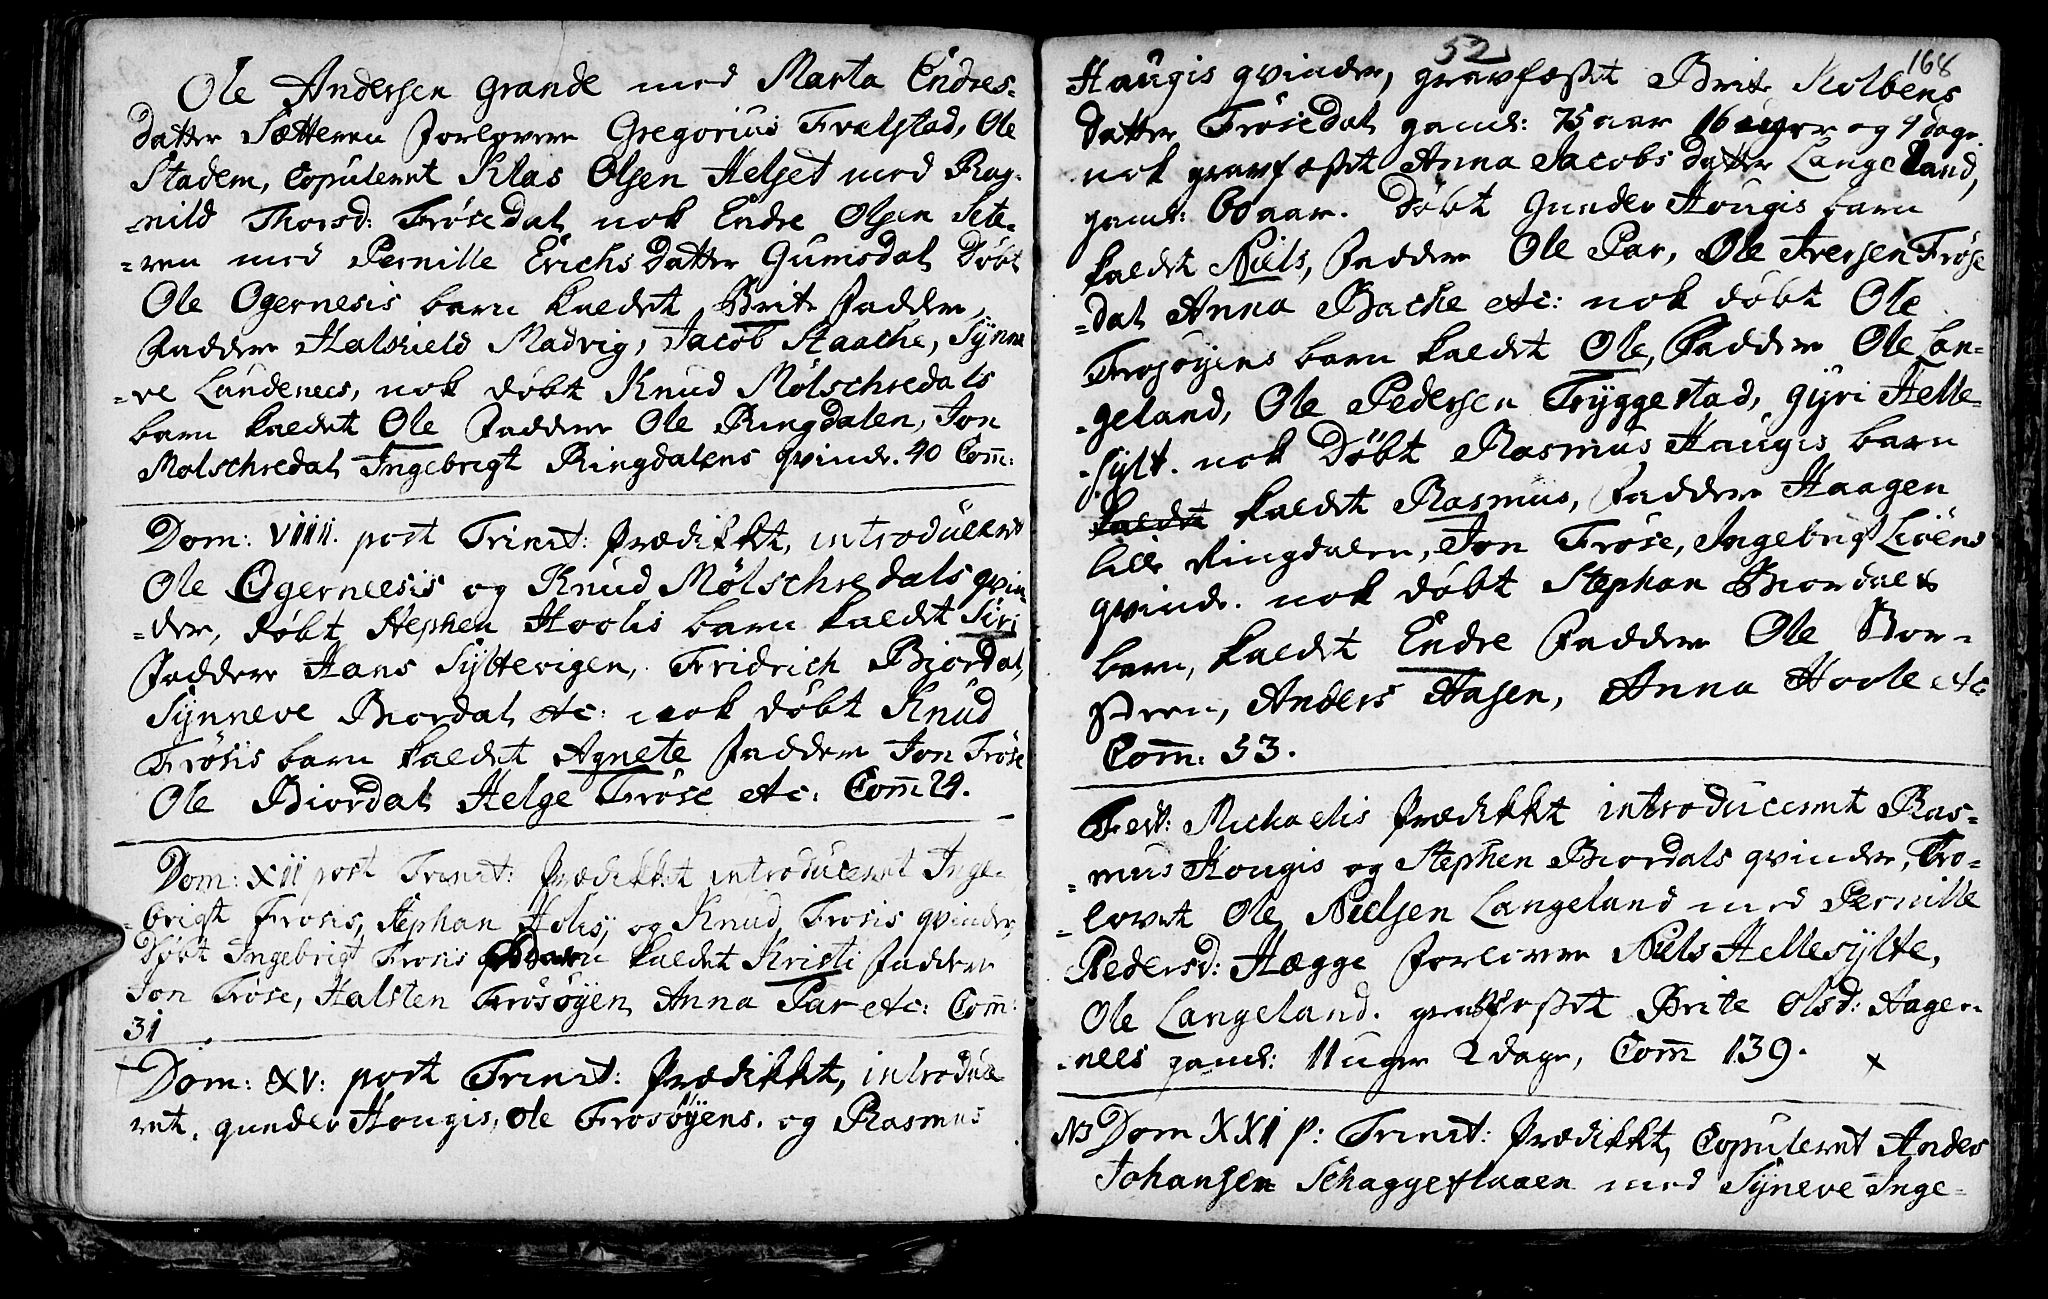 Ole Andersen Grande med Marta Endres-
datter Sætteren forlovere Gregorius Frælstad, Ole
Stadem, Copuleret Klas Olsen Helset med Rag-
-nild Thorsd: Frøsedal, nok Endre Olsen Sete-
=ren med Pernille Erichsdatter Gumsdal, Døbt
Ole Ogernesis barn kaldet Brite faddere,
faddere Halskield Madvig, Jacob Staache, Synne
=ve Landenees, nok døbt Knud Mølschredals
barn kaldet Ole faddere Ole Ringdalen, Jon
Molschredal, Ingebrigt Ringdalens qvinde. 40 Com̄:
Dom: VIIII. post Trinit: prædikket, introduceret
Ole Ogerneesis og Knud Mølschredals qvin-
=der, døbt Stephen Hoolis barn kaldet Siri
faddere Hans Syltevigen, Fridrich Biordal,
Synneve Biordal, etc: nok døbt Knud
Frøsis barn kaldet Agnete faddere Jon Frøse
Ole Biordal, Helge Frøse etc: Com̄ 29.
Dom: XII post Trinit: prædikket introduceret Inge-
-brigt Frosis, Stephan Holis, og Knud Frosis qvinder,
Døbt Ingebrigt Frosis barn kaldet Kristi faddere
Jon Frøse, Halsten Frøsøyen, Anna Par etc: Com̄:
31
Dom: XV: post Trinit: prædikket, introduce
ret, gunder Hougis, Ole Frosøyens. og Rasmus
52 168
Haugis qvinder, gravfæstet Brite Kolbens
datter Frøsedal, gaml: 75 aar 16 uger og 4 dage.
nok gravfæstet Anna Jacobs datter Langeland,
gaml: 60 aar. Døbt gunder Hougis barn
kaldet Niels, faddere Ole Par, Ole Iversen Frøse
=dal, Anna Bache etc: nok døbt Ole
Frosøyens barn kaldet Ole, faddere Ole Lan-
-geland, Ole Pedersen Tryggestad, gyri Helle-
-sylt. nok Døbt Rasmus Haugis barn
kaldet kaldet Rasmus, faddere Haagen
lille Ringdalen, Jon Frøse, Ingebrigt Liøens
qvinde. nok døbt Stephan Biordals
barn, kaldet Endre faddere Ole Bor-
stren, Anders Aasen, Anna Hoole etc
Com̄: 53.
Fest: Michaelis prædikket introduceret Ras-
=mus Hougis og Stephen Biordals qvinder, Tro-
=lovet Ole Nielsen Langeland med Pernille
Pedersd: Hægge forlovere Niels Hellesylte,
Ole Langeland. gravfæstet Brite Olsd: Hagen-
-nees gaml: 11 uger 2 dage, Com̄ 139. x
NB Dom XXI p: Trinit: prædikket, Copuleret Anders
Johansen Schaggeflaaen med Syneve Inge-